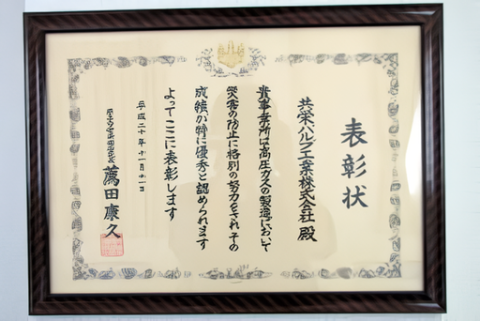 表彰状
共栄バルブ工業株式会社 殿
貴事業所は高圧ガスの製造において
災害の防止に格別の努力をされその
成績が特に優秀と認められます
よってここに表彰します
平成二十年十一月十一日
薦田康久